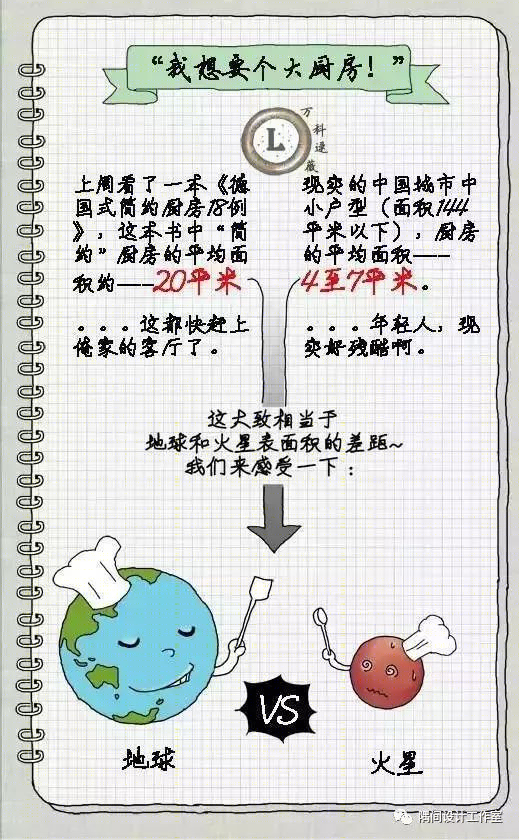 “我想要个大厨房！”
L
万科速裁
上周看了一本《德
国式简约厨房18例
》，这本书中“简
约”厨房的平均面
积约——20平米
。。。这都快赶上
俺家的客厅了。
现实的中国城市中
小户型（面积144
平米以下），厨房
的平均面积——
4至7平米。
。。。年轻人，现
实好残酷啊。
这大致相当于
地球和火星表面积的差距~
我们来感受一下：
VS
地球
火星
隋间设计工作室